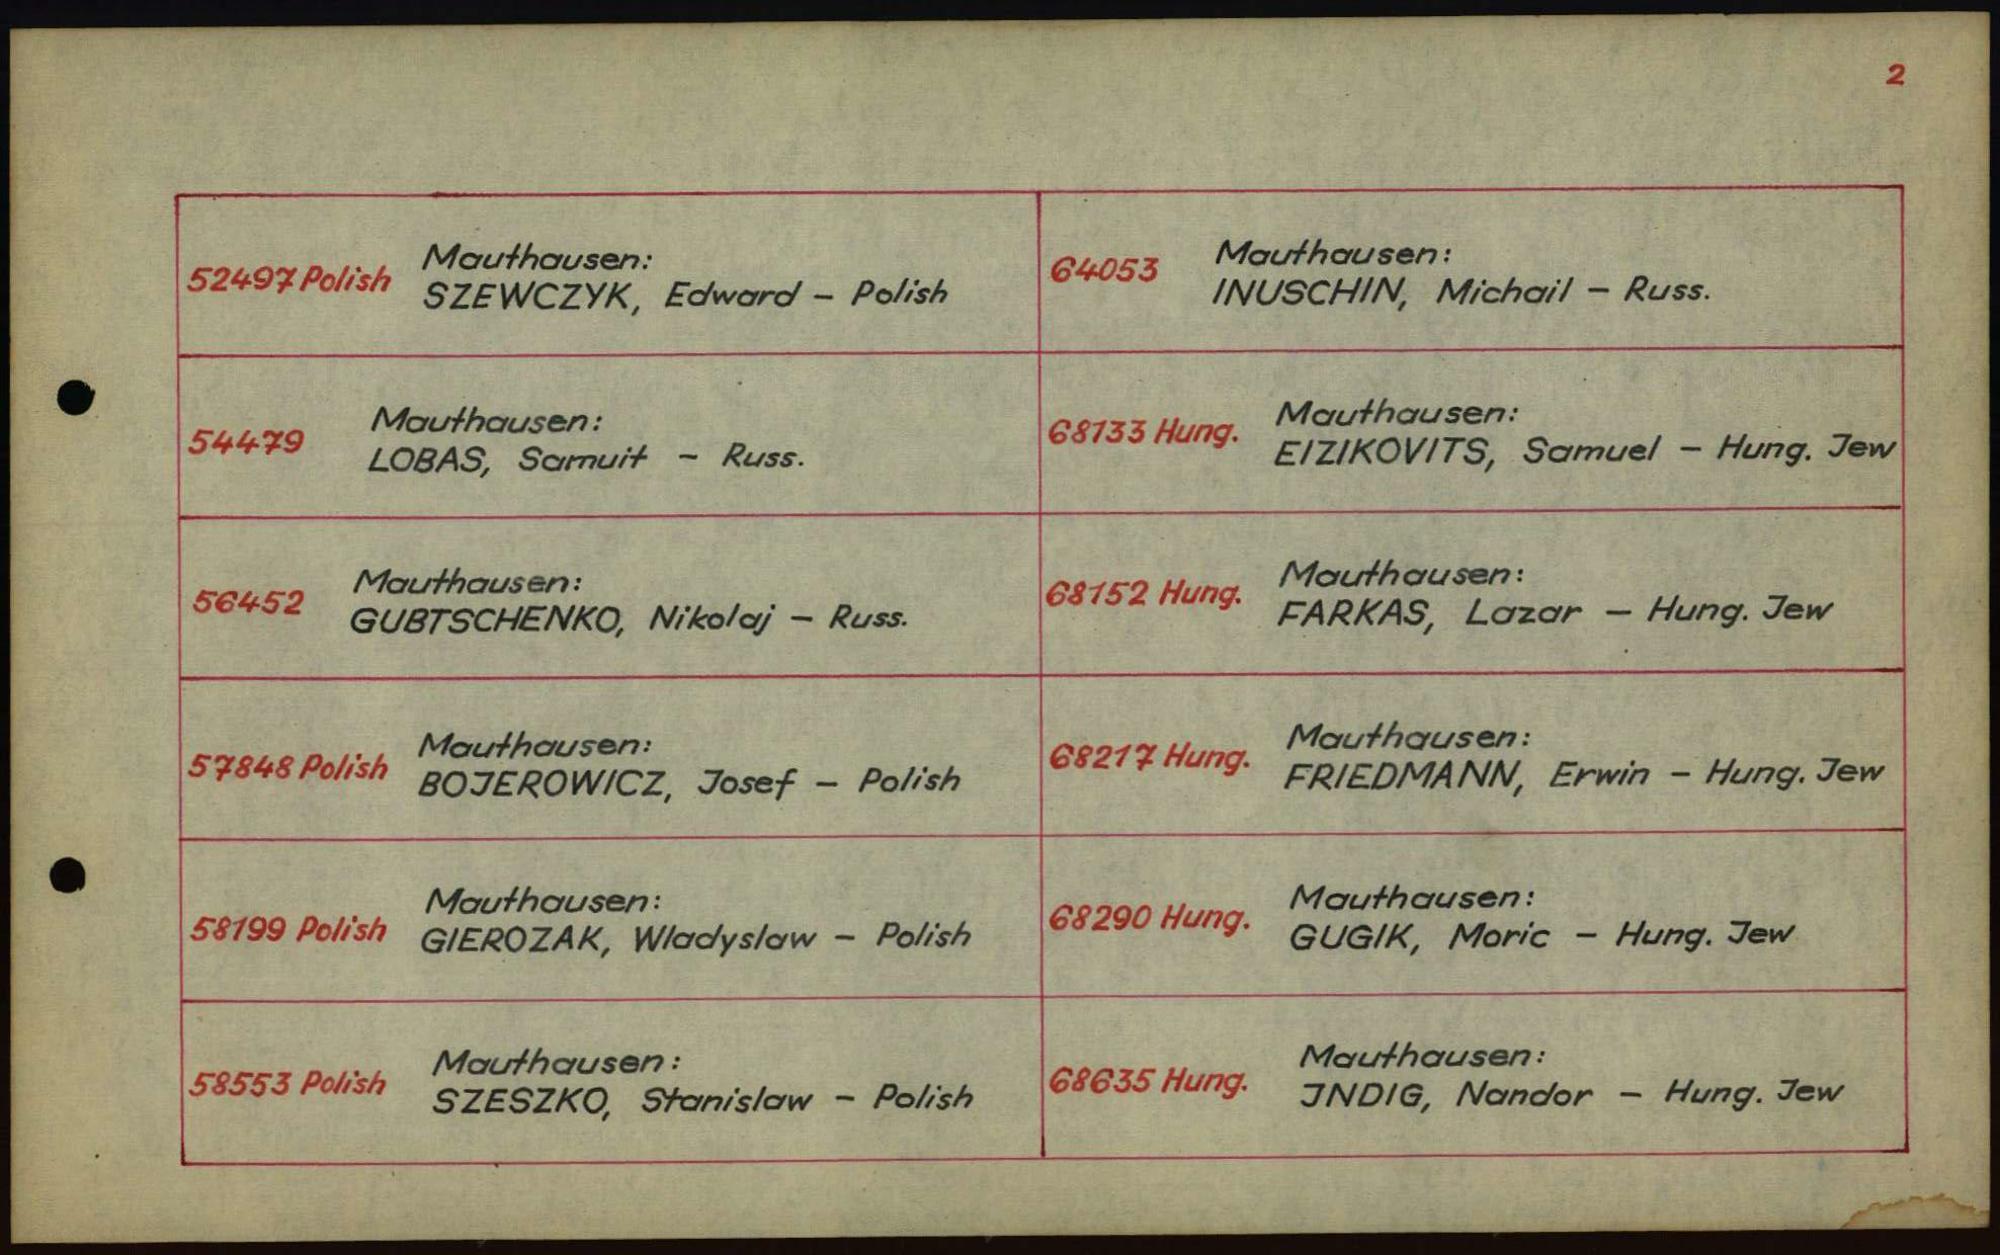 2
52497 Polish
Mauthausen:
SZEWCZYK, Edward – Polish
54479
Mauthausen:
LOBAS, Samuit – Russ.
56452
Mauthausen:
GUBTSCHENKO, Nikolaj – Russ.
57848 Polish
Mauthausen:
BOJEROWICZ, Josef – Polish
58199 Polish
Mauthausen:
GIEROZAK, Wladyslaw – Polish
58553 Polish
Mauthausen:
SZESZKO, Stanislaw – Polish
64053
Mauthausen:
INUSCHIN, Michail – Russ.
68133 Hung.
Mauthausen:
EIZIKOVITS, Samuel – Hung. Jew
68152 Hung.
Mauthausen:
FARKAS, Lazar – Hung. Jew
68217 Hung.
Mauthausen:
FRIEDMANN, Erwin – Hung. Jew
68290 Hung.
Mauthausen:
GUGIK, Moric – Hung. Jew
68635 Hung.
Mauthausen:
JNDIG, Nandor – Hung. Jew